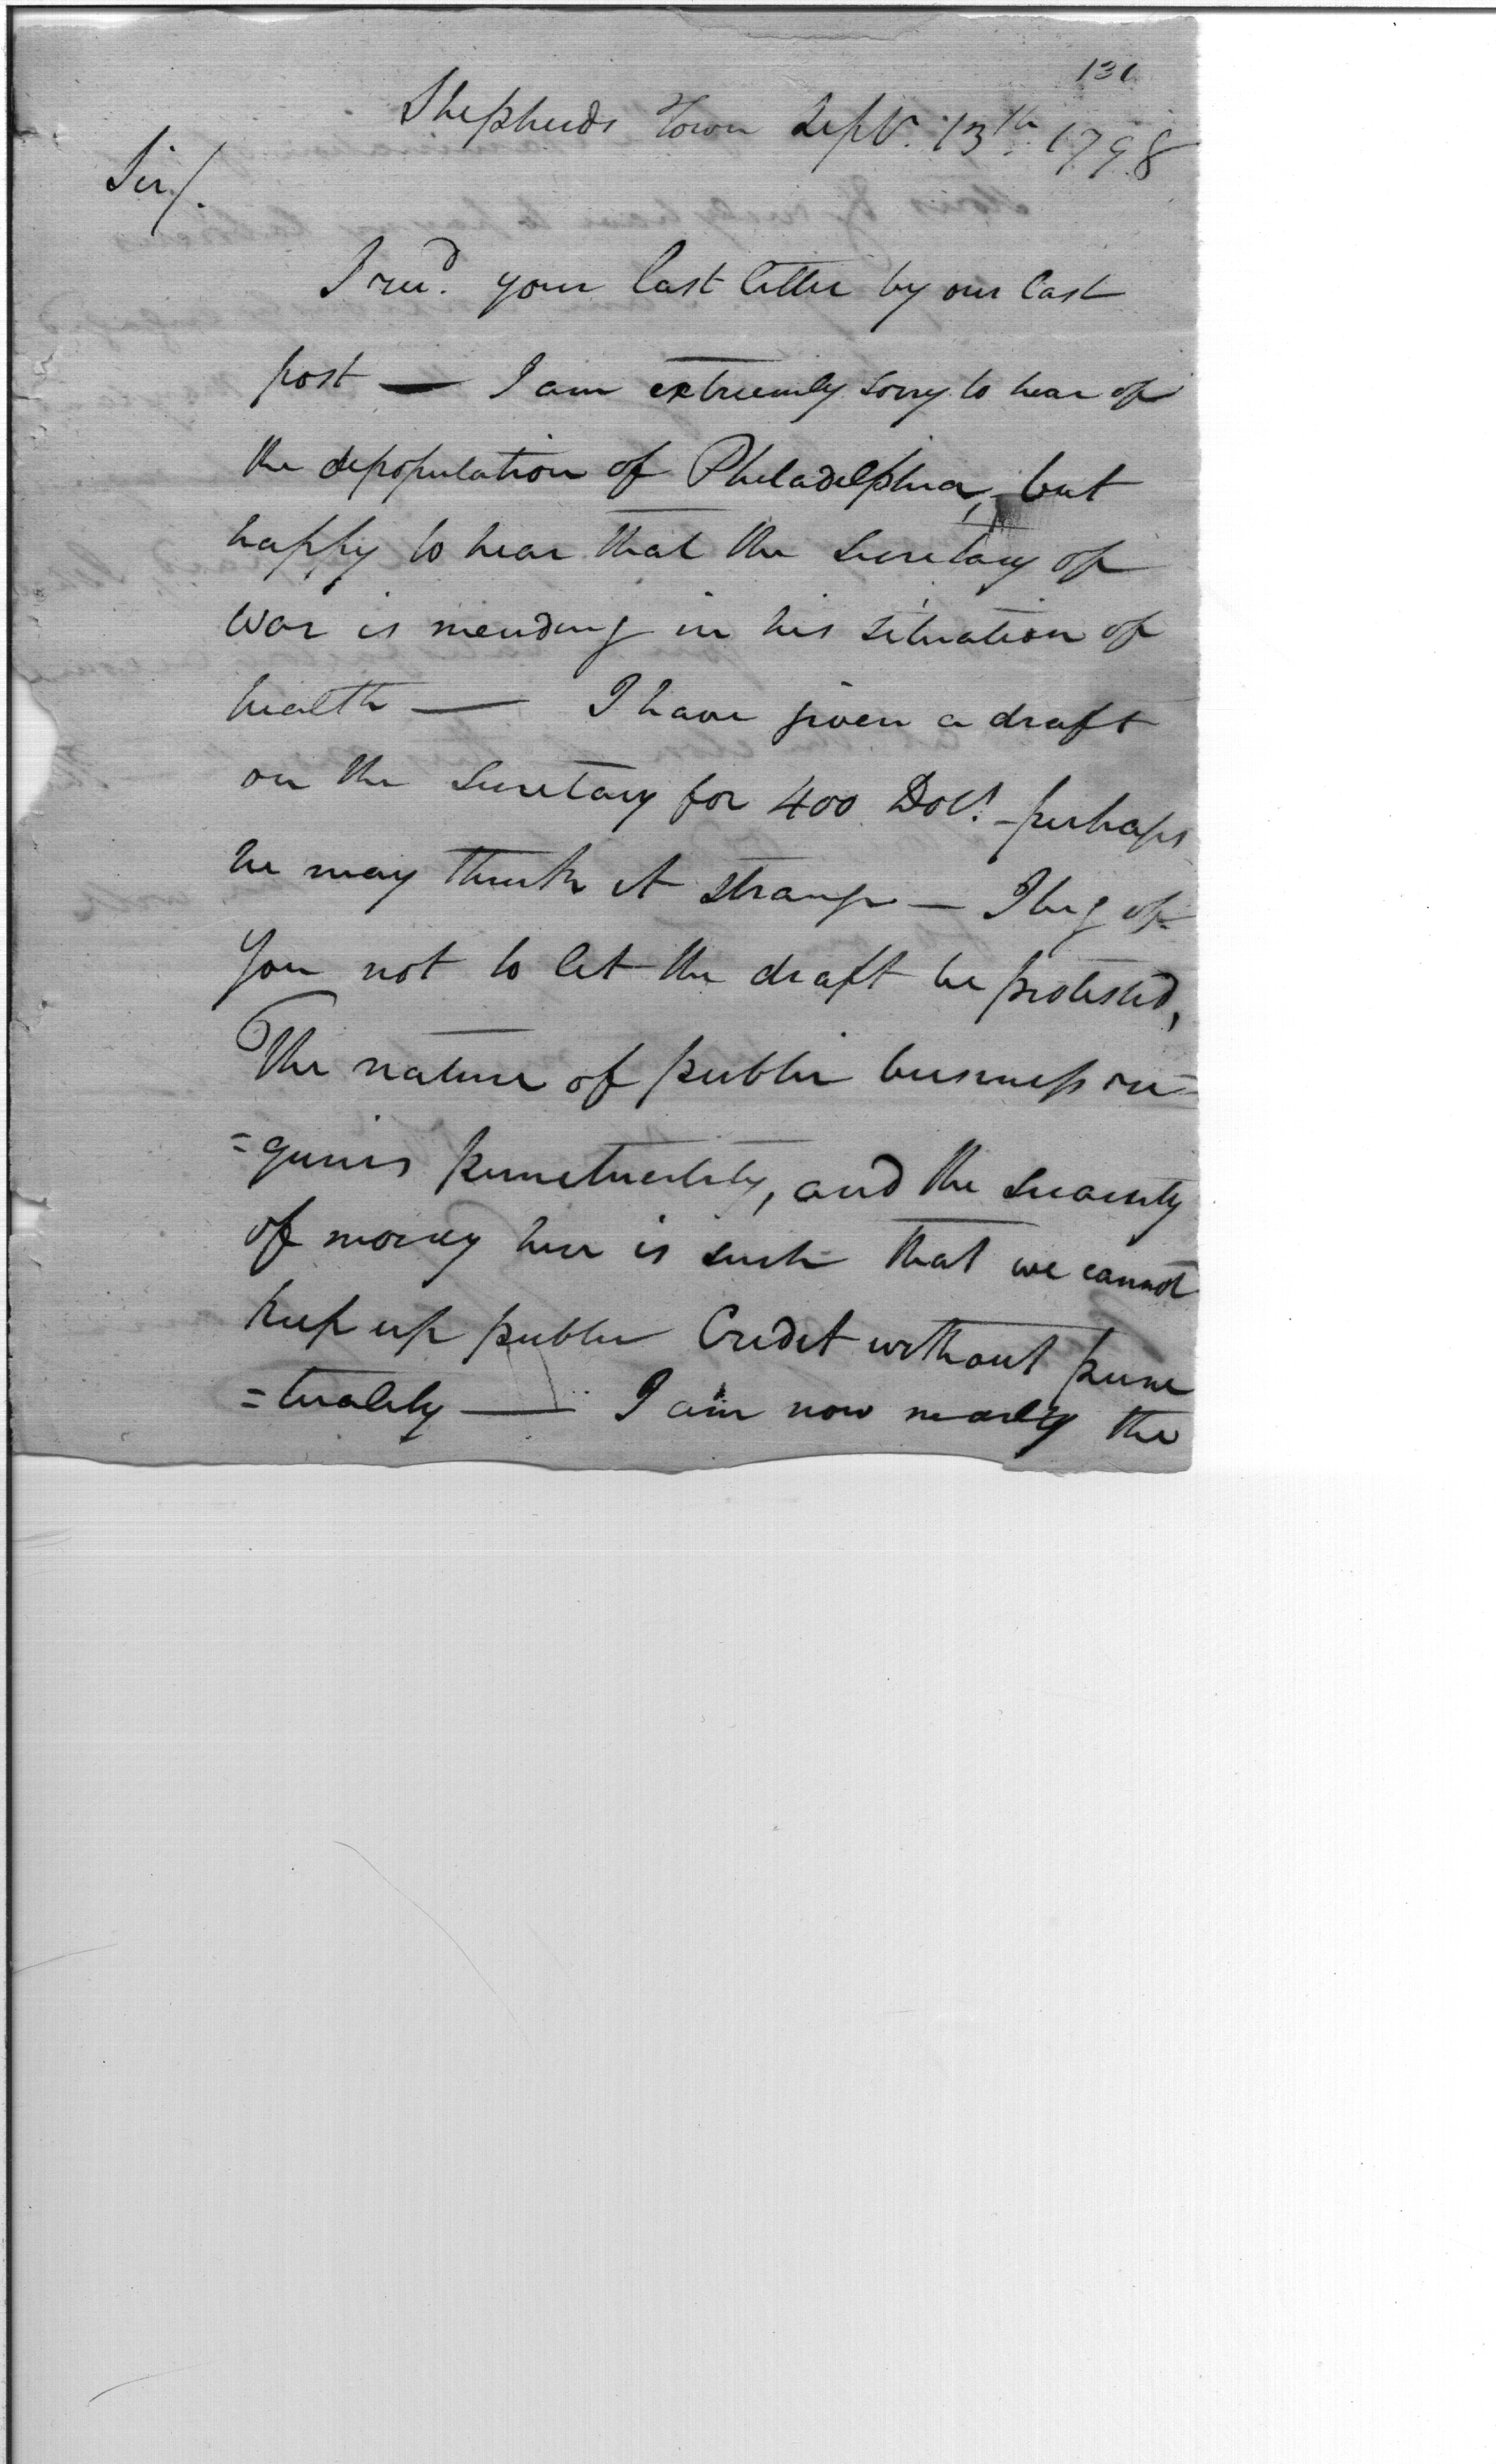 Shepherds Town Sept. 13th. 1798
Sir/.
I recd. your last letter by our last
post — I am extreemly sorry to hear of
the depopulation of Philadelphia, but
happy to hear that the Secretary of
War is mending in his situation of
health — I have given a draft
on the Secretary for 400 Dols. - perhaps
he may think it strange — I beg of
you not to let the draft be protested,
The nature of public business re=
=quires punctuality, and the scarcity
of money here is such that we cannot
keep up public Credit without punc
=tuality — I am now nearly the